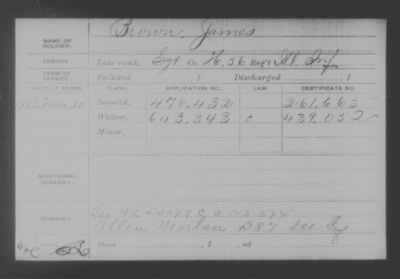 Brown, James
NAME OF SOLDIER:
SERVICE: Late rank, Sgt Co. H, 56 Reg't Ill Inf
TERM OF SERVICE: Enlisted , 1 Discharged , 1
DATE OF FILING. CLASS. APPLICATION NO. LAW. CERTIFICATE NO.
Invalid, 470.432 261.663
Widow, 643.343 C 439.052
Minor,
ADDITIONAL SERVICES:
REMARKS:
Allen Morlan D 87 Inf
Died , 1 , at